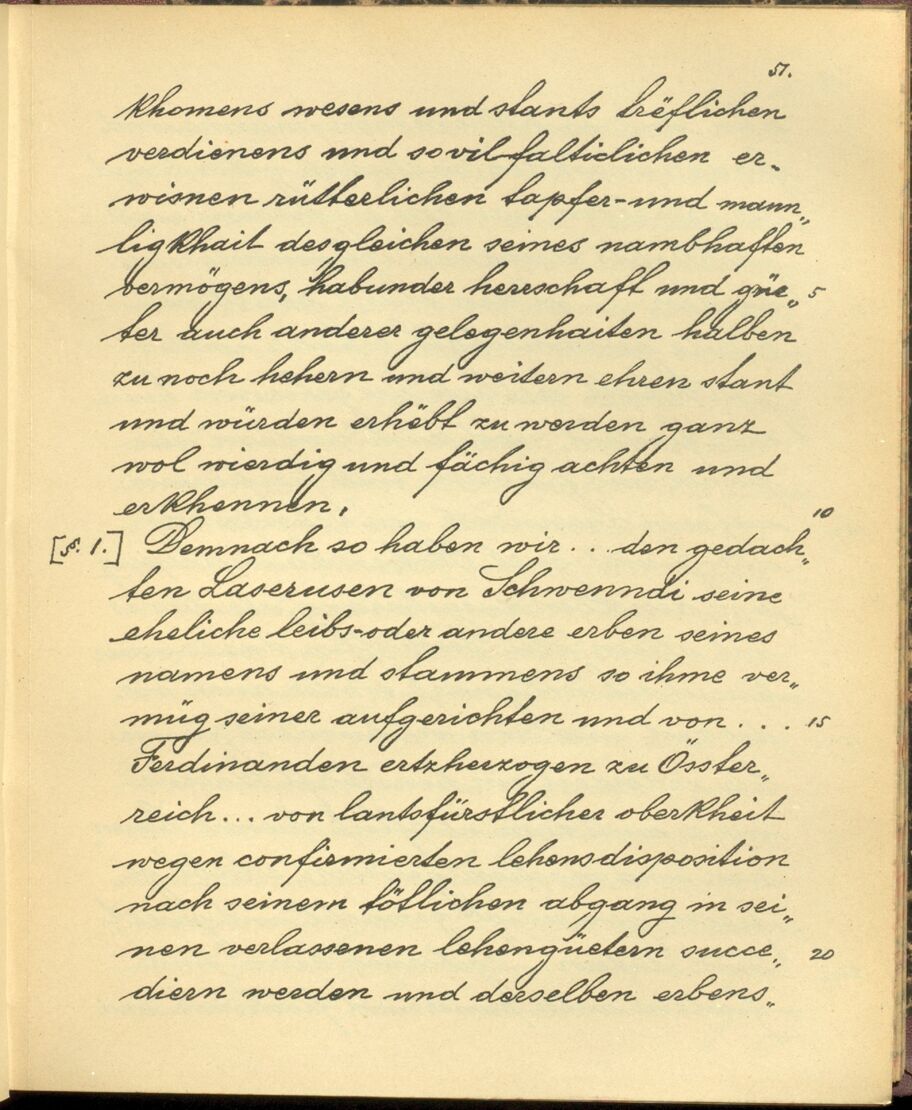 51.
khomens wesens und stants trëflichen
verdienens und sovilfalticlichen er-
wisnen rütterlichen tapfer- und mann„
ligkhait desgleichen seines nambhaften
vermögens, habunder herrschaft und güe„ 5
ter auch anderer gelegenhaiten halben
zu noch hehern und weitern ehren stant
und würden erhëbt zu werden ganz
wol wierdig und fächig achten und
erkhennen,
10
[§. 1.] Demnach so haben wir . . den gedach„
ten Laserusen von Schwenndi seine
eheliche leibs- oder andere erben seines
namens und stammens so ihme ver„
müg seiner aufgerichten und von . . . 15
Ferdinanden ertzherzogen zuÖsster„
reich... von lantsfürstlicher oberkheit
wegen confirmierten lehensdisposition
nach seinem tötlichen abgang in sei„
nen verlassenen lehengüetern succe„ 20
diern werden und derselben erbens„